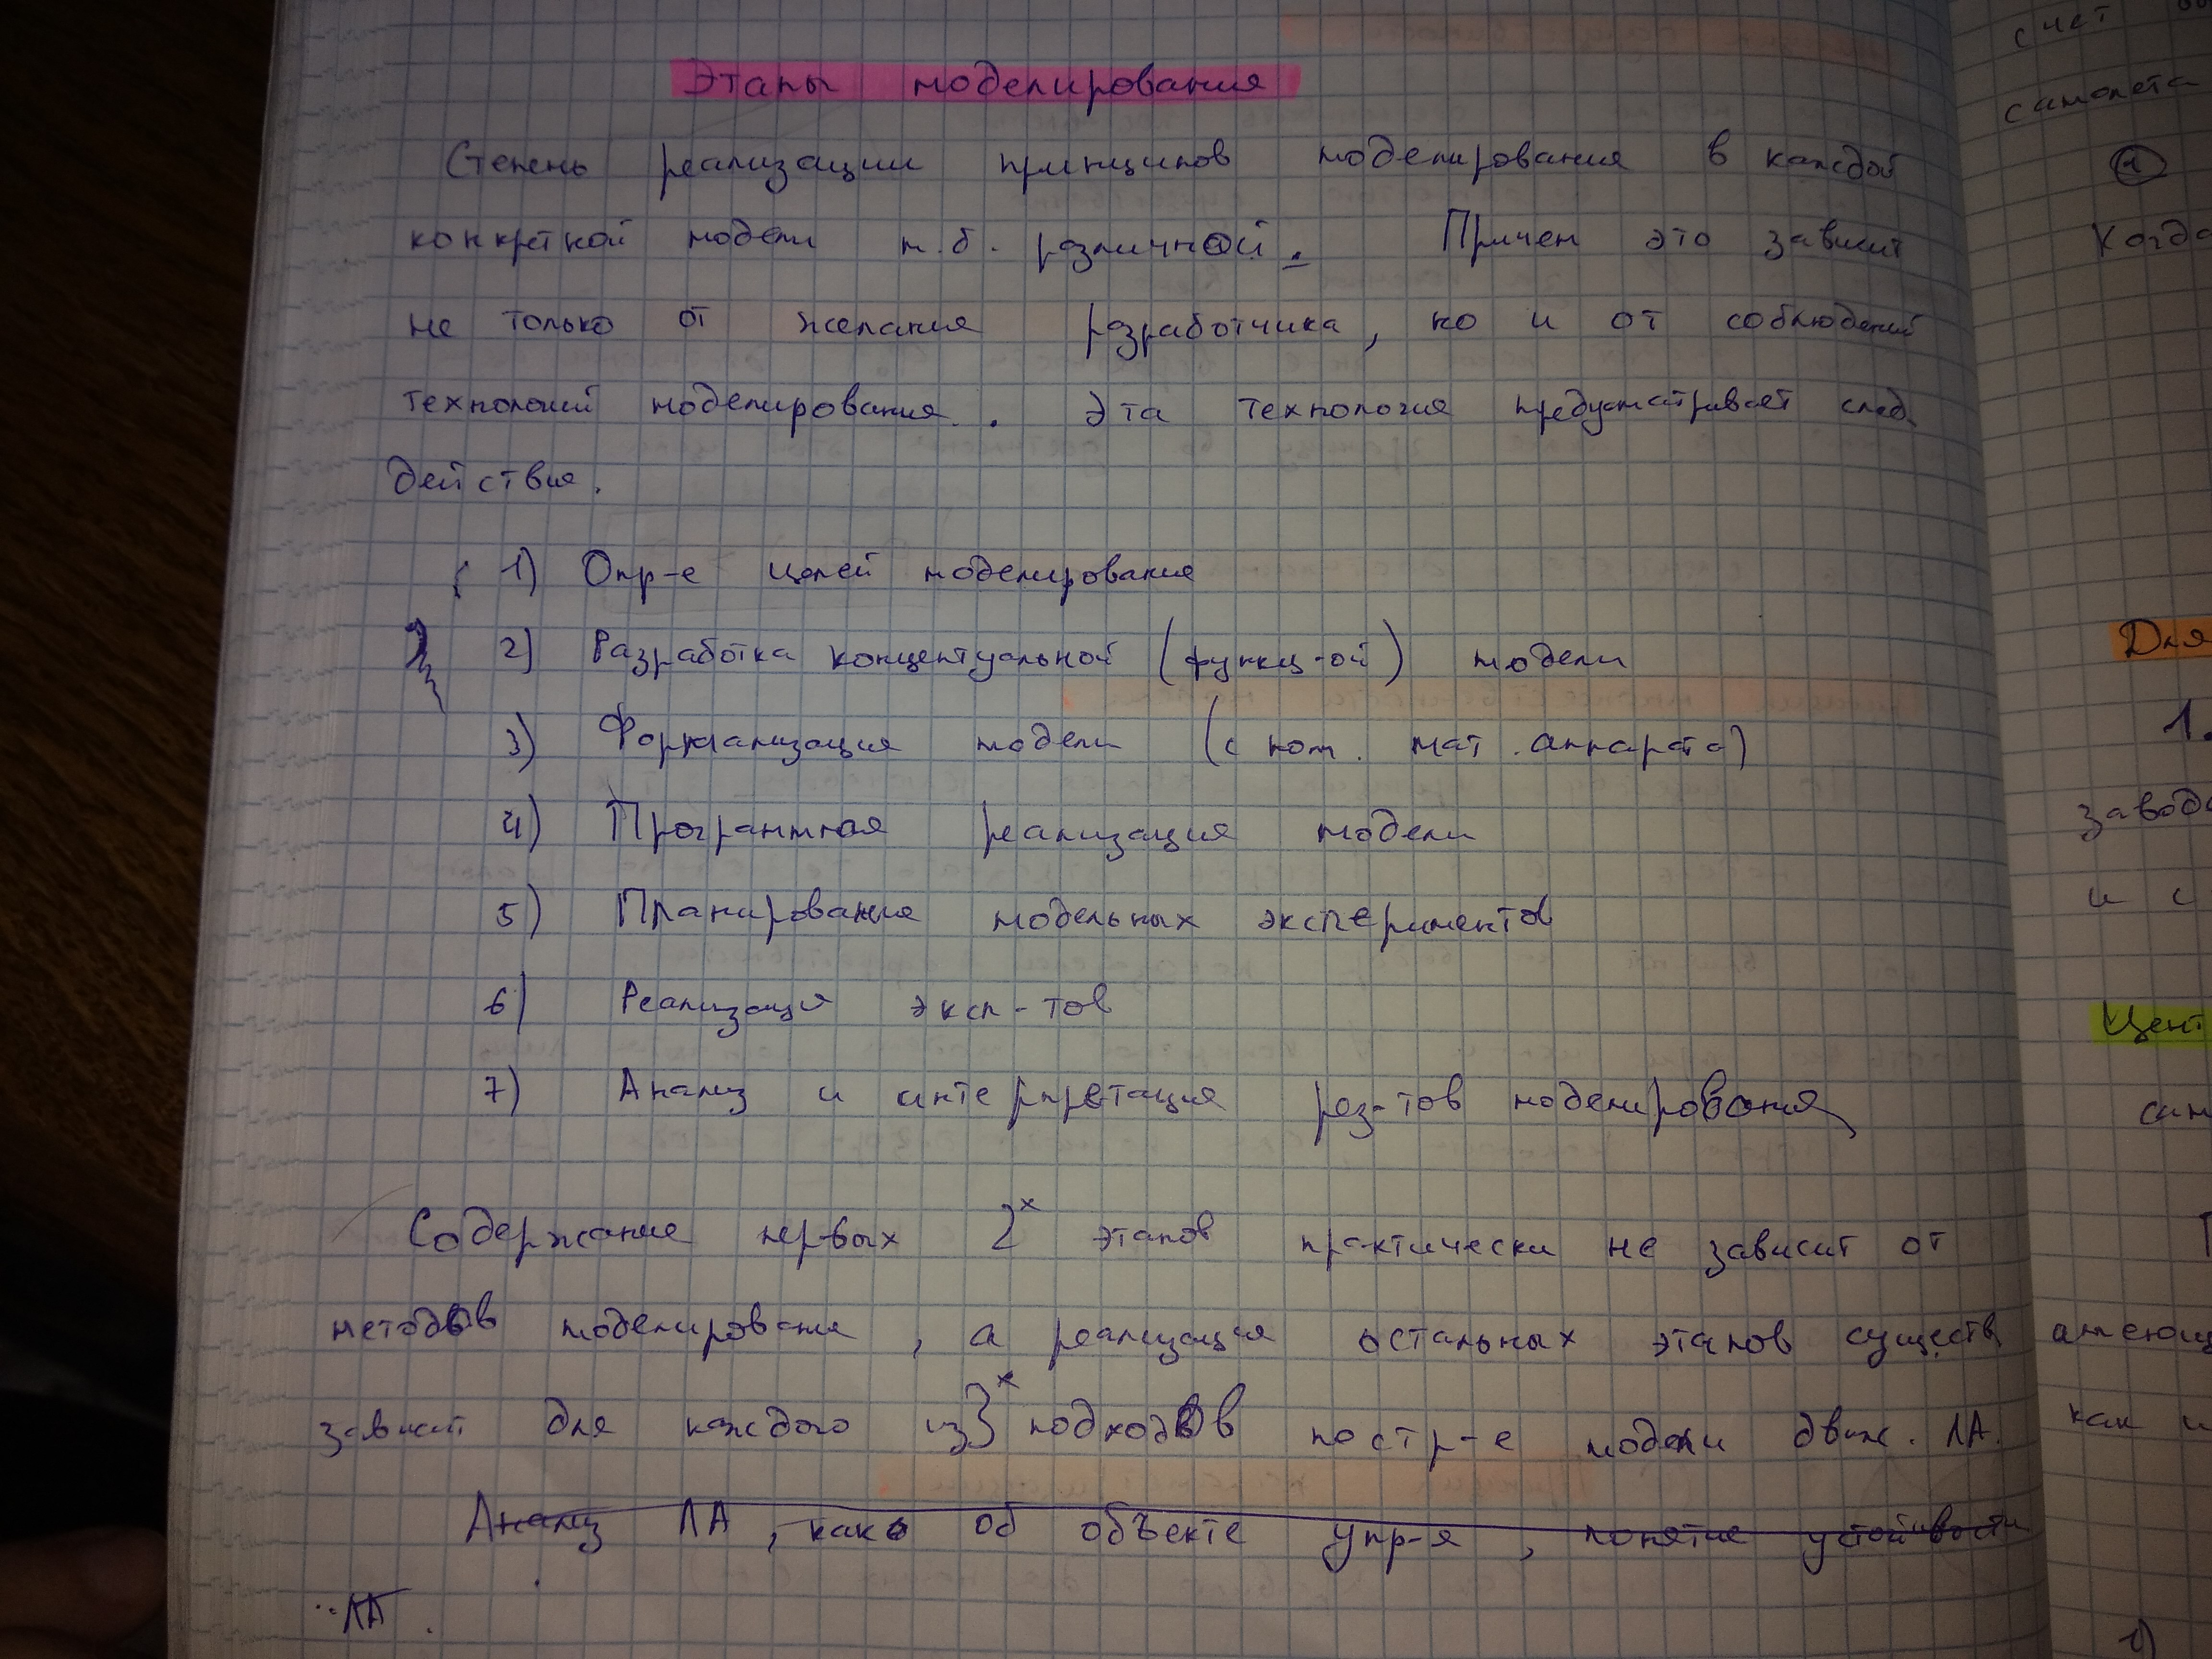 Этапы моделирования
Степень реализации принципов моделирования в каждой
конкретной модели м.б. различной. Причем это зависит
не только от желания разработчика, но и от соблюдений
технологий моделирования. Эта технология предусматривает след.
действия.
1) Опр-е целей моделирования
2) Разработка концептуальной (функц-ой) модели
3) Формализация модели (с пом. мат. аппарата)
4) Программная реализация модели
5) Планирование модельных экспериментов
6) Реализация эксп-тов
7) Анализ и интерпретация рез-тов моделирования
Содержание первых 2х этапов практически не зависит от
методов моделирования, а реализация остальных этапов существ
зависит для каждого из 3х подходов постр-е модели движ. ЛА.
Анализ ЛА, как об объекте упр-я, понятие устойчивости
ЛА.
счет
самолета
Когда
Для
1.
завод
и с
Цент
сим
как и